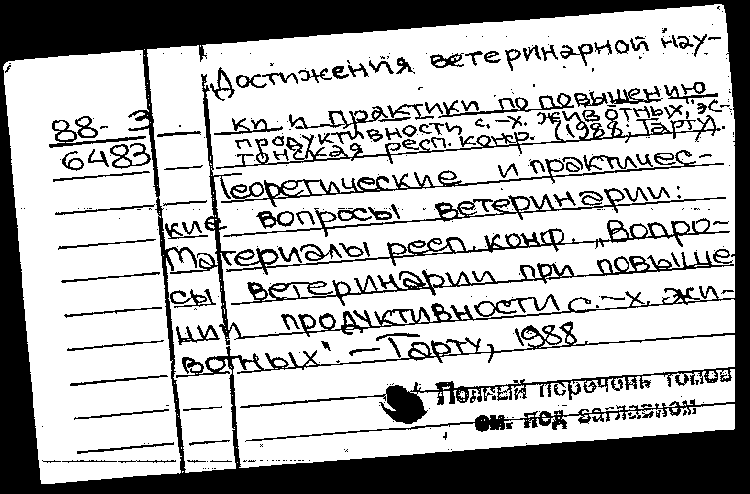 „Достижения ветеринарной нау-
88-3
6483
ки и практики по повышению
продуктивности с.-х. животных", эс-
тонская респ. конф. (1988; Тарту).
Теоретические и практичес-
кие вопросы ветеринарии:
Материалы респ. конф. „Вопро-
сы ветеринарии при повыше-
нии продуктивности с.-х. жи-
вотных". - Тарту, 1988.
Полный перечень томов
см. под заглавном